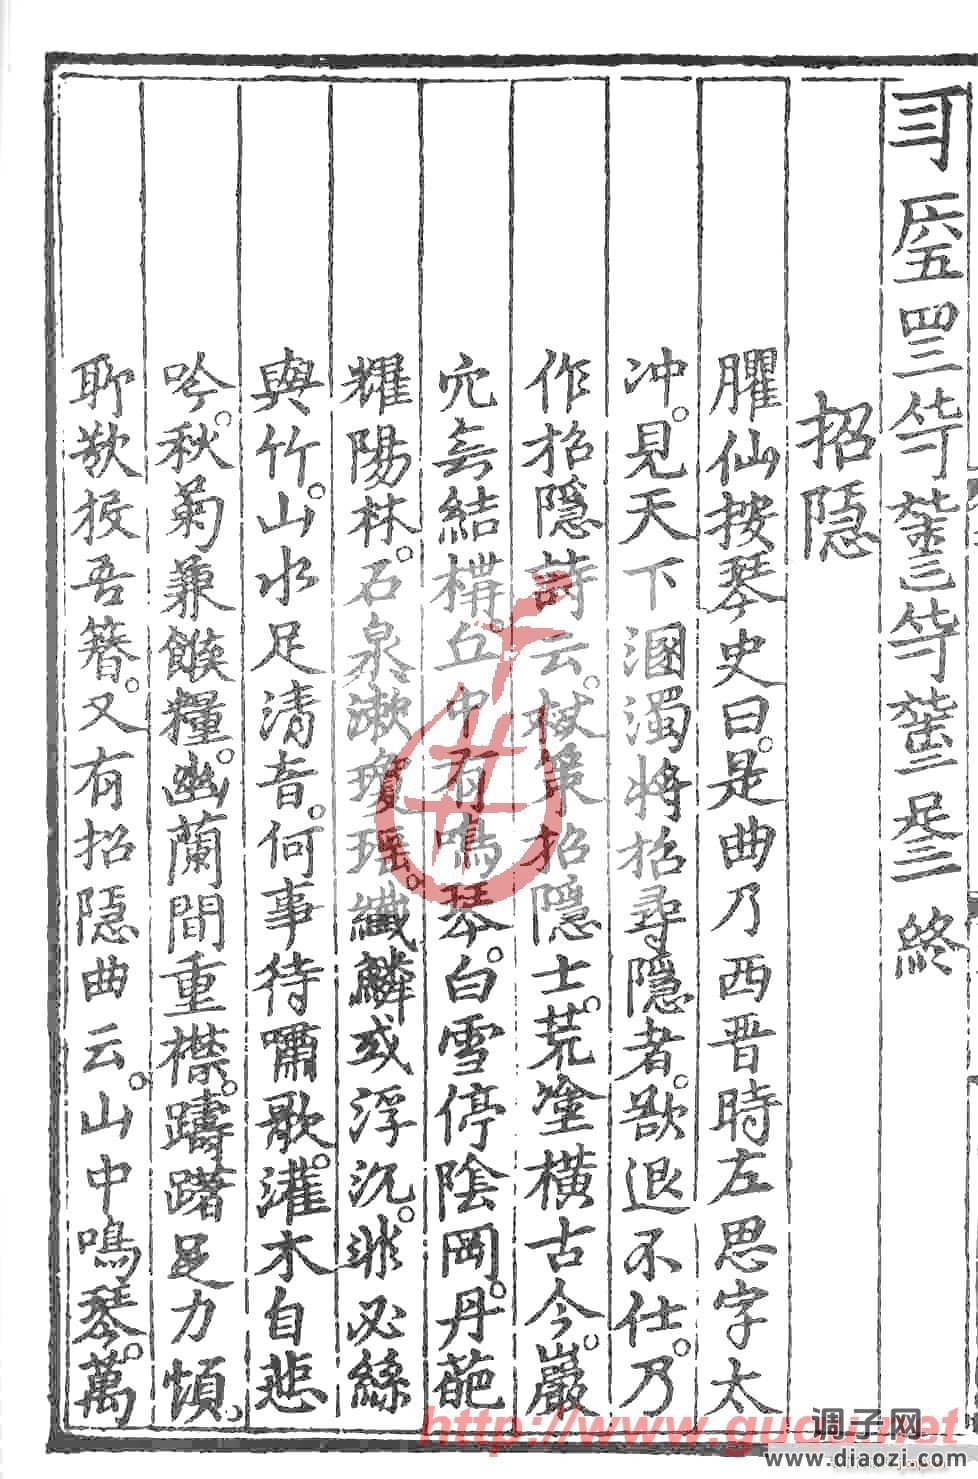 終
招隱
臞仙按琴史曰。是曲乃西晋時左思字太
冲。見天下溷濁將招尋隱者。欲退不仕。乃
作招隱詩云。杖策招隱士。荒塗橫古今。巖
穴無結構。丘中有鳴琴。白雪停陰岡。丹葩
耀陽林。石泉漱瓊瑤。纖鱗或浮沉。非必絲
與竹。山水足清音。何事待嘯歌。灌木自悲
吟。秋菊兼餱糧。幽蘭間重襟。躊躇足力煩。
聊欲投吾簪。又有招隱曲云。山中鳴琴。萬
http://www.guqu.net
调子网
www.diaozi.com